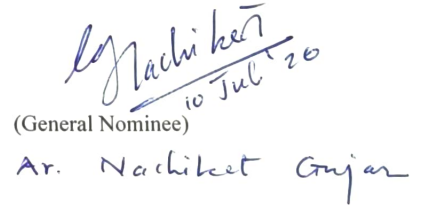 Nachiket
10 Jul' 20
(General Nominee)
Ar. Nachiket Gujar